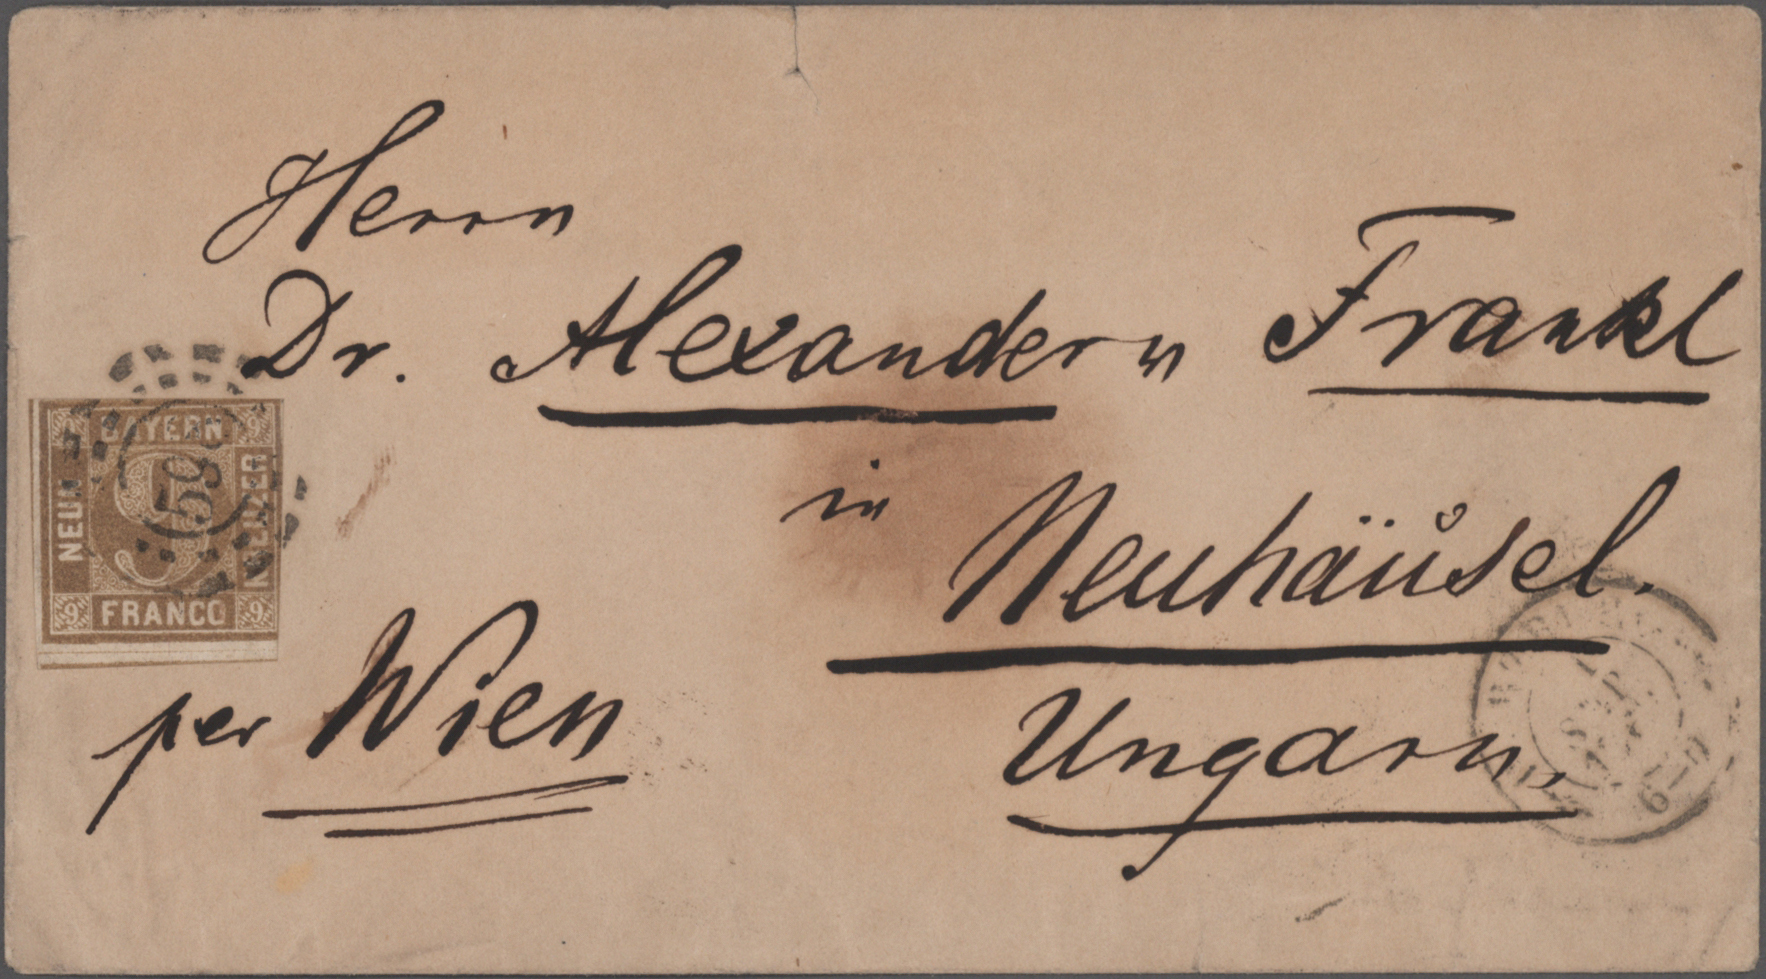 Herrn
Dr. Alexander n Frankl
in Neuhäusel.
Ungarn.
per Wien
BAYERN
NEUN
KREUZER
FRANCO
9 9
9 9
9
598